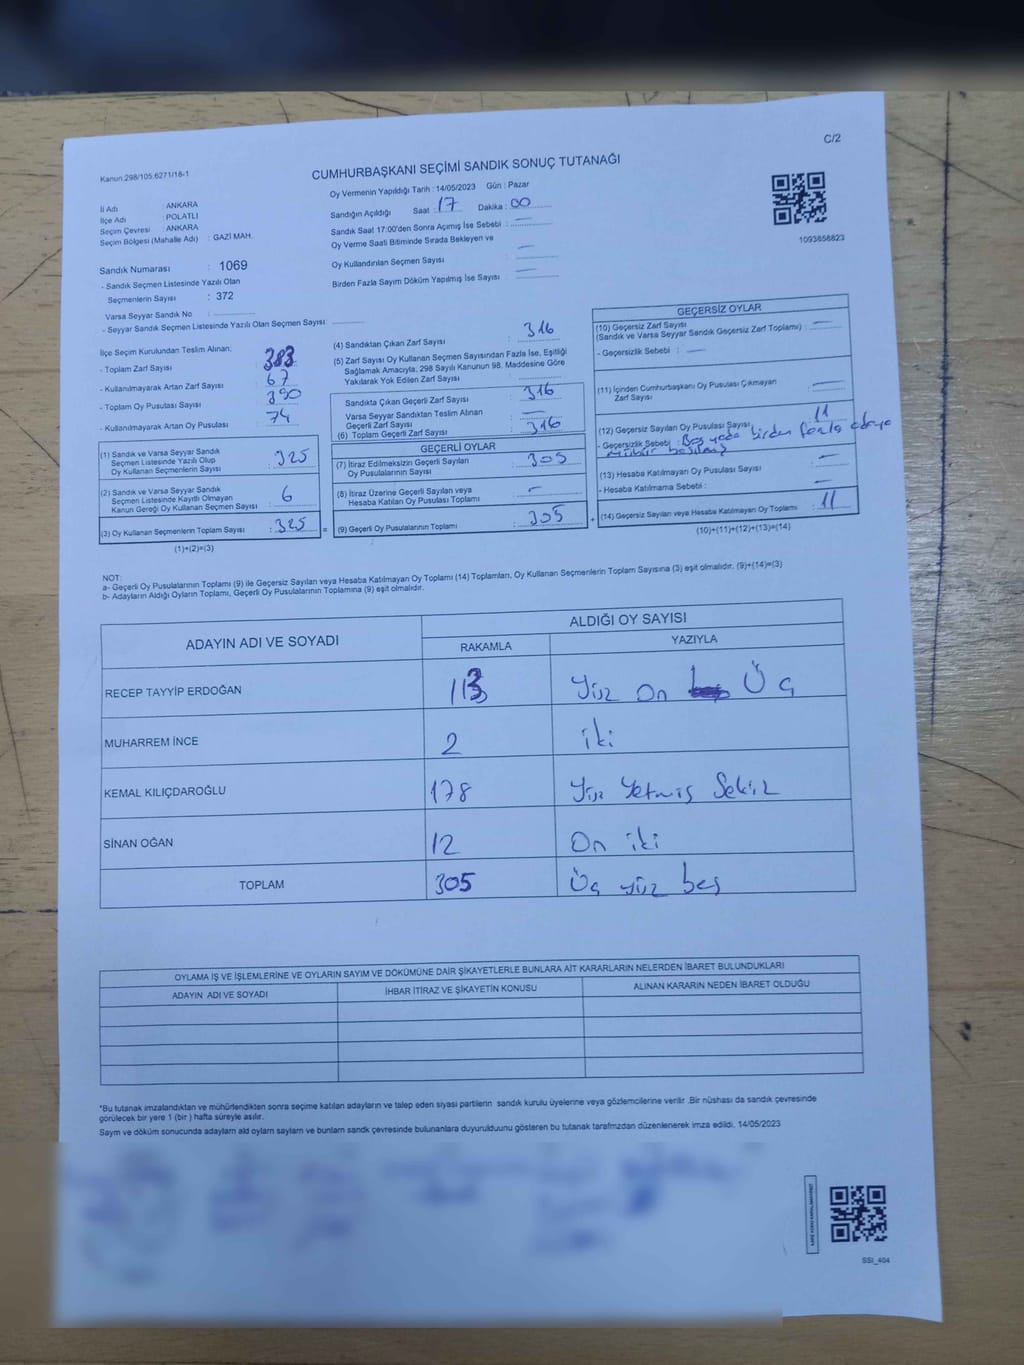 C/2
Kanun:298/105.6271/16-1
CUMHURBAŞKANI SEÇİMİ SANDIK SONUÇ TUTANAĞI
Oy Vermenin Yapıldığı Tarih : 14/05/2023 Gün : Pazar
İl Adı : ANKARA
İlçe Adı : POLATLI
Seçim Çevresi : ANKARA
Seçim Bölgesi (Mahalle Adı) : GAZİ MAH.
Sandığın Açıldığı Saat : 17 Dakika : 00
Sandık Saat 17:00'den Sonra Açımış İse Sebebi :
Oy Verme Saati Bitiminde Sırada Bekleyen ve
Oy Kullandırılan Seçmen Sayısı :
Birden Fazla Sayım Döküm Yapılmış İse Sayısı :
1093658823
Sandık Numarası : 1069
- Sandık Seçmen Listesinde Yazılı Olan
Seçmenlerin Sayısı : 372
Varsa Seyyar Sandık No :
- Seyyar Sandık Seçmen Listesinde Yazılı Olan Seçmen Sayısı :
İlçe Seçim Kurulundan Teslim Alınan;
- Toplam Zarf Sayısı : 383
- Kullanılmayarak Artan Zarf Sayısı : 67
- Toplam Oy Pusulası Sayısı : 390
- Kullanılmayarak Artan Oy Pusulası : 74
(1) Sandık ve Varsa Seyyar Sandık
Seçmen Listesinde Yazılı Olup
Oy Kullanan Seçmenlerin Sayısı : 325
(2) Sandık ve Varsa Seyyar Sandık
Seçmen Listesinde Kayıtlı Olmayan
Kanun Gereği Oy Kullanan Seçmen Sayısı : 6
(3) Oy Kullanan Seçmenlerin Toplam Sayısı : 325 =
(1)+(2)=(3)
(4) Sandıktan Çıkan Zarf Sayısı : 316
(5) Zarf Sayısı Oy Kullanan Seçmen Sayısından Fazla İse, Eşitliği
Sağlamak Amacıyla; 298 Sayılı Kanunun 98. Maddesine Göre
Yakılarak Yok Edilen Zarf Sayısı :
Sandıkta Çıkan Geçerli Zarf Sayısı : 316
Varsa Seyyar Sandıktan Teslim Alınan
Geçerli Zarf Sayısı :
(6) Toplam Geçerli Zarf Sayısı : 316
GEÇERLİ OYLAR
(7) İtiraz Edilmeksizin Geçerli Sayılan
Oy Pusulalarının Sayısı : 305
(8) İtiraz Üzerine Geçerli Sayılan veya
Hesaba Katılan Oy Pusulası Toplamı :
(9) Geçerli Oy Pusulalarının Toplamı : 305 +
GEÇERSİZ OYLAR
(10) Geçersiz Zarf Sayısı
(Sandık ve Varsa Seyyar Sandık Geçersiz Zarf Toplamı) :
- Geçersizlik Sebebi :
(11) İçinden Cumhurbaşkanı Oy Pusulası Çıkmayan
Zarf Sayısı
(12) Geçersiz Sayılan Oy Pusulası Sayısı : 11
- Geçersizlik Sebebi : Boş yada birden fazla adaya
mühür basılmış
(13) Hesaba Katılmayan Oy Pusulası Sayısı :
- Hesaba Katılmama Sebebi :
(14) Geçersiz Sayılan veya Hesaba Katılmayan Oy Toplamı : 11
(10)+(11)+(12)+(13)=(14)
NOT:
a- Geçerli Oy Pusulalarının Toplamı (9) ile Geçersiz Sayılan veya Hesaba Katılmayan Oy Toplamı (14) Toplamları, Oy Kullanan Seçmenlerin Toplam Sayısına (3) eşit olmalıdır. (9)+(14)=(3)
b- Adayların Aldığı Oyların Toplamı, Geçerli Oy Pusulalarının Toplamına (9) eşit olmalıdır.
ADAYIN ADI VE SOYADI
ALDIĞI OY SAYISI
RAKAMLA YAZIYLA
RECEP TAYYİP ERDOĞAN 113 Yüz On Üç
MUHARREM İNCE 2 iki
KEMAL KILIÇDAROĞLU 178 Yüz Yetmiş Sekiz
SİNAN OĞAN 12 On iki
TOPLAM 305 Üç yüz beş
OYLAMA İŞ VE İŞLEMLERİNE VE OYLARIN SAYIM VE DÖKÜMÜNE DAİR ŞİKAYETLERLE BUNLARA AİT KARARLARIN NELERDEN İBARET BULUNDUKLARI
ADAYIN ADI VE SOYADI İHBAR İTİRAZ VE ŞİKAYETİN KONUSU ALINAN KARARIN NEDEN İBARET OLDUĞU
*Bu tutanak imzalandıktan ve mühürlendikten sonra seçime katılan adayların ve talep eden siyasi partilerin sandık kurulu üyelerine veya gözlemcilerine verilir .Bir nüshası da sandık çevresinde
görülecek bir yere 1 (bir ) hafta süreyle asılır.
Sayım ve döküm sonucunda adayların ald oyların sayların ve bunların sandk çevresinde bulunanlara duyurulduunu gösteren bu tutanak tarafmzdan düzenlenerek imza edildi. 14/05/2023
SSI_404